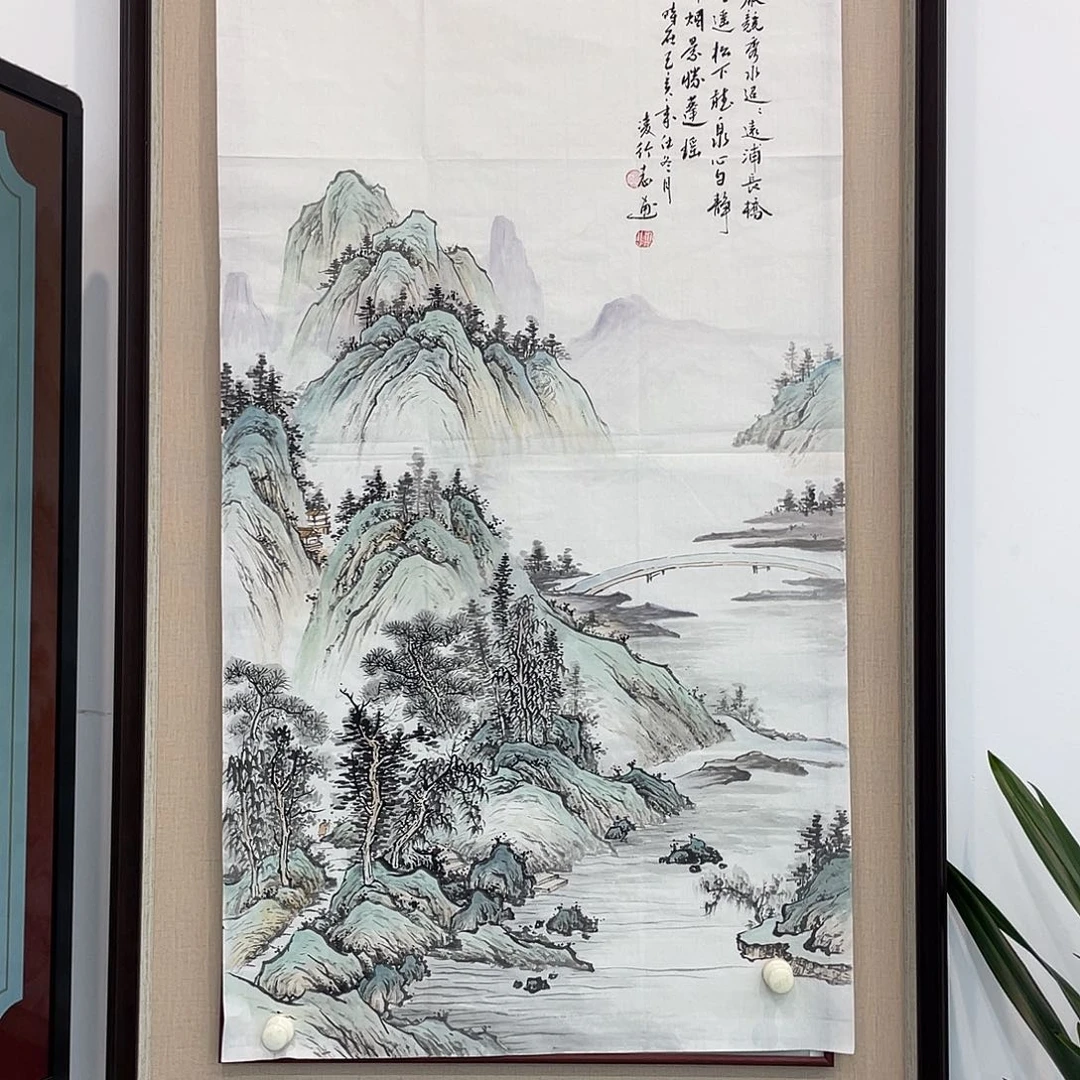 競秀水迢迢遠浦長橋
遥松下聴泉心自静
烟景勝蓬瑶
時在己亥年仲冬月
凌行志画